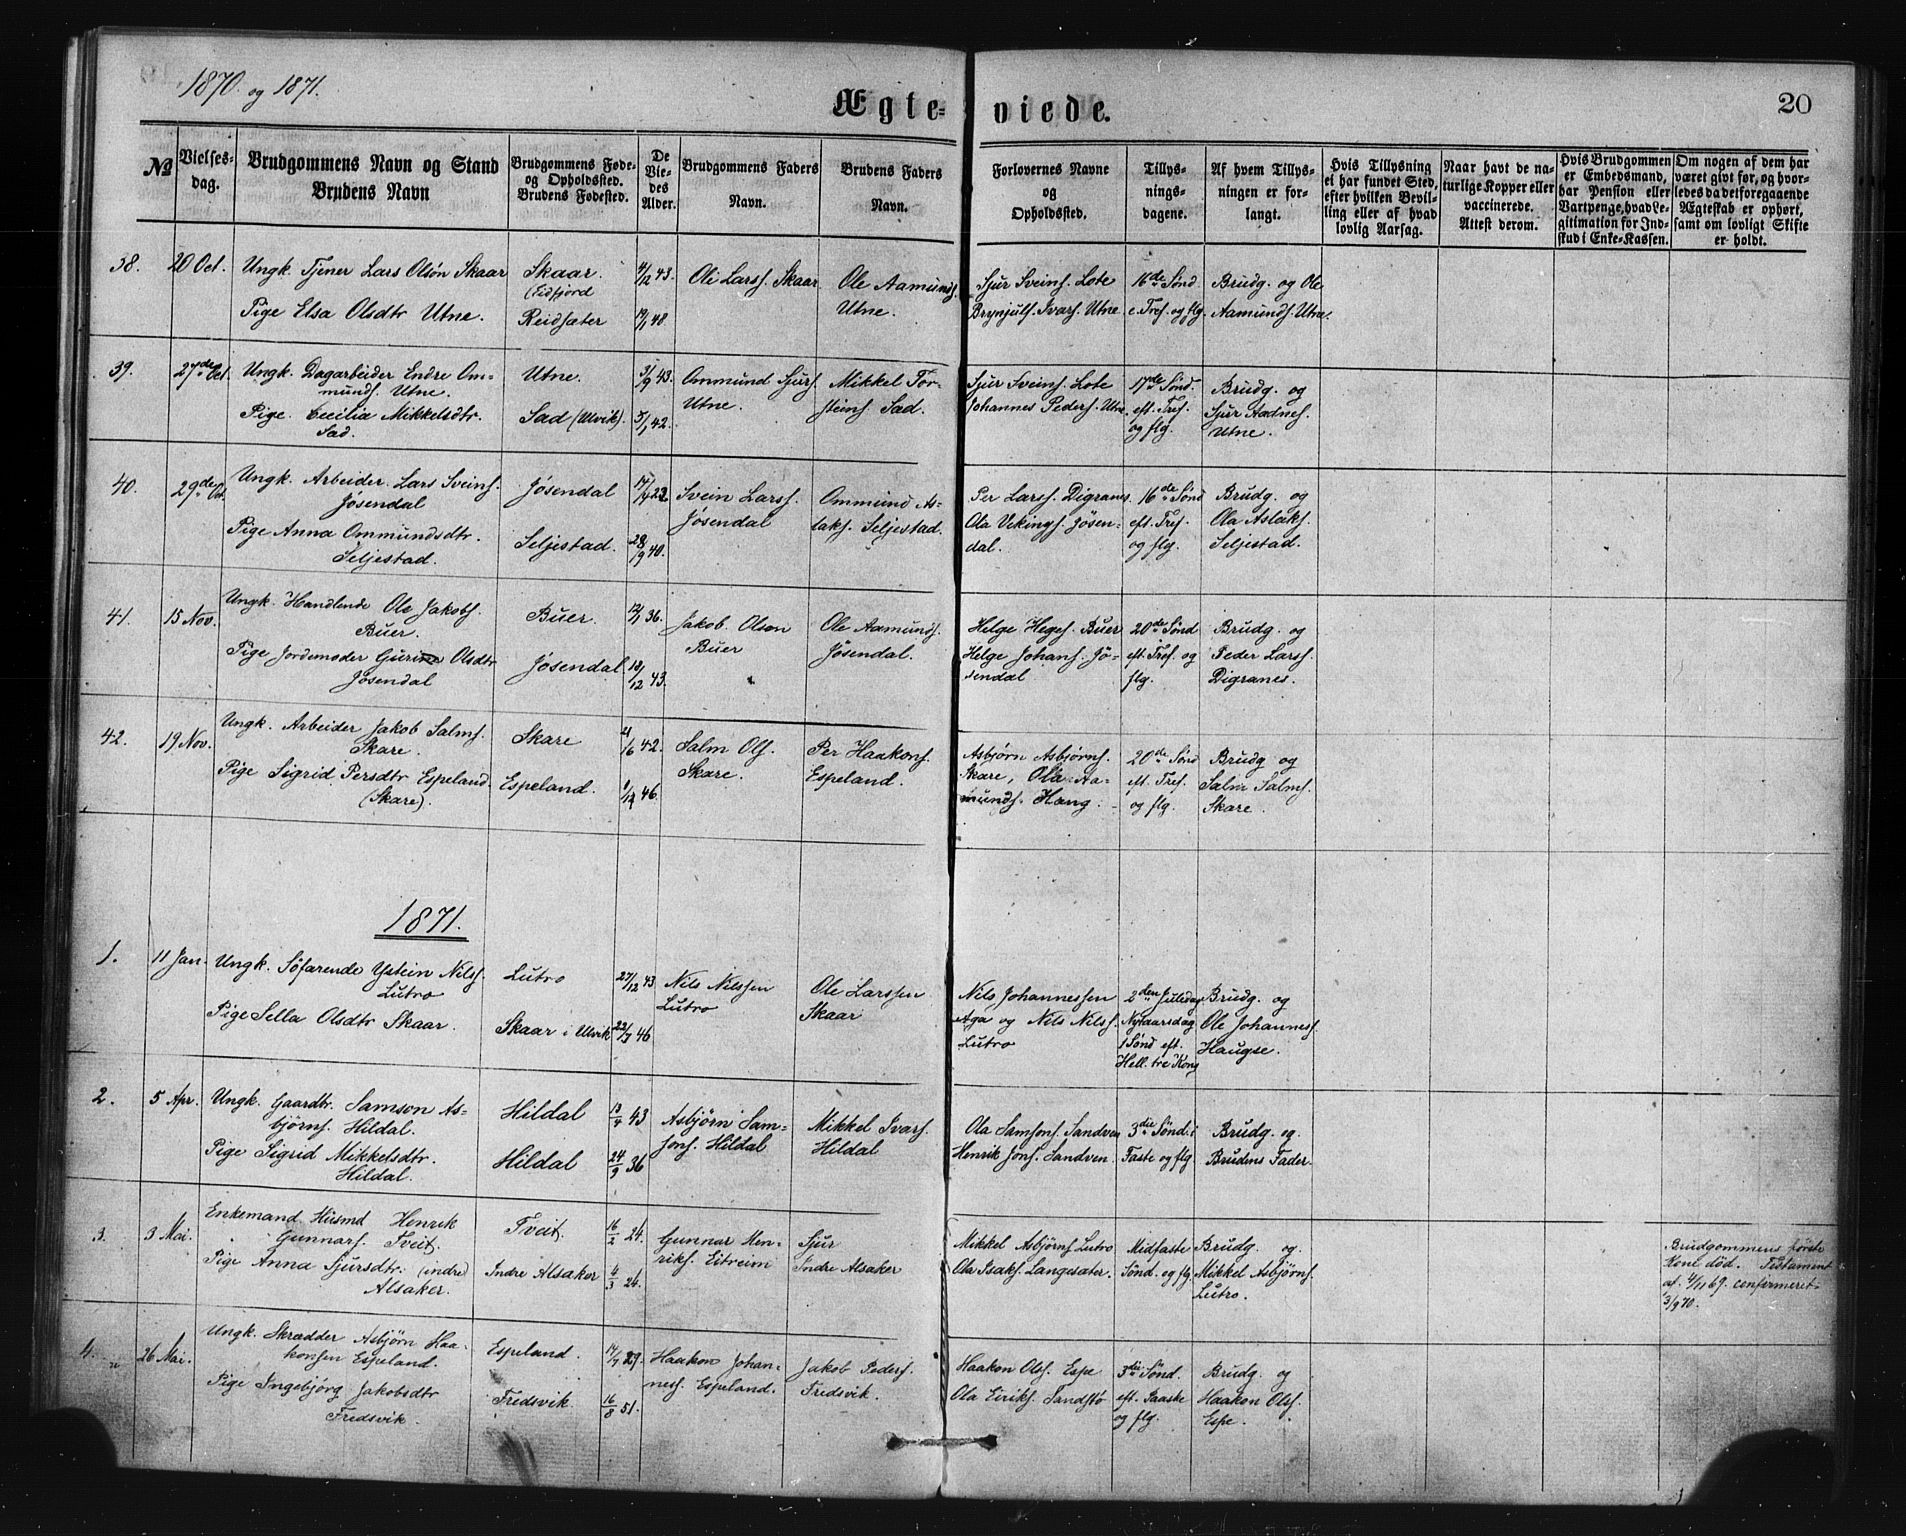 1870 og 1871.
Ægte-viede.
20
No
Vielses-dag.
Brudgommens Navn og Stand
Brudens Navn
Brudgommens Føde- og Opholdssted.
Brudens Fødested.
De Viedes Alder.
Brudgommens Faders Navn.
Brudens Faders Navn.
Forlovernes Navne og Opholdssted.
Tillysningsdagene.
Af hvem Tillysningen er forlangt.
Hvis Tillysning ei har fundet Sted, efter hvilken Bevilling eller af hvad lovlig Aarsag.
Naar havt de naturlige Kopper eller vaccinerede. Attest derom.
Hvis Brudgommen er Embedsmand, har Pension eller Vartpenge, hvad Legitimation for Indskud i Enke-Kassen.
Om nogen af dem har været gift før, og hvorledes da det foregaaende Ægteskab er ophørt, samt om lovligt Skifte er holdt.
38. 20 Oct.
Ungk. Tjener Lars Olsøn Skaar
Pige Elsa Olsdtr Utne.
Skaar (Eidfjord
Reidsæter
4/12 43.
19/1 48
Ole Larss. Skaar
Ole Aamunds. Utne.
Sjur Sveins. Lote
Brynjulf Ivars. Utne
16de Sønd e. Tref. og flg.
Brudg. og Ole Aamunds. Utne.
39. 27de Oct.
Ungk. Dagarbeider Endre Ommunds. Utne.
Pige. Cecilia Mikkelsdtr. Sad.
Utne.
Sad (Ulvik).
3/9 43.
5/1 42.
Ommund Sjurs. Utne.
Mikkel Torsteins. Sad.
Sjur Sveins. Lote
Johannes Peders. Utne.
17de Sønd. eft. Tref. og flg.
Brudg. og Sjur Aadnes. Utne.
40. 29de Oct.
Ungk. Arbeider. Lars Sveins. Jøsendal
Pige Anna Ommundsdtr. Seljestad.
Jøsendal
Seljestad.
28/9 40.
Svein Larss. Jøsendal
Ommund Aslaks. Seljestad.
Per Larss. Digranes.
Ola Vikings. Jøsendal.
16de Sønd eft. Tref. og flg.
Brudg. og Ola Aslaks. Seljestad.
41. 15 Nov.
Ungk. Handlende Ole Jakobs. Buer.
Pige Jordemoder Gurina Olsdtr Jøsendal
Buer.
Jøsendal
12/1 36.
18/12 43.
Jakob. Olson Buer
Ole Aamunds. Jøsendal.
Helge Heges. Buer
Helge Johans. Jøsendal
20de Sønd eft. Tref. og flg.
Brudg. og Peder Larss. Digranes.
42. 19 Nov.
Ungk. Arbeider Jakob Salms. Skare.
Pige Sigrid Persdtr Espeland. (Skare).
Skare
Espeland.
21/6 42.
1/12 46.
Salm Ols. Skare.
Per Haakons. Espeland.
Asbjørn Asbjørns. Skare, Ola Aamunds. Haug.
20de Sønd eft. Tref. og flg.
Brudg og Salm Salms. Skare.
1871.
1. 11 Jan.
Ungk. Søfarende Ystein Nils. Lutro
Pige Sella Olsdtr Skaar.
Lutro
Skaar i Ulvik
27/12 43
46
Nils Nilssen Lutro
Ole Larssen Skaar
Nils Johannessen Aga og Nils Nils. Lutro
2den Juledag Nytaarsdag 1 Sønd eft. Hell. tre Kong
Brudg. og Ole Johannes. Haugse.
2. 5 Apr.
Ungk. Gaardtr. Samson Asbjørns. Hildal.
Pige Sigrid Mikkelsdtr. Hildal.
Hildal
Hildal
13/4 43
24/9 36
Asbjørn Samsons. Hildal
Mikkel Ivars. Hildal
Ola Samsons. Sandven
Henrik Jons. Sandven
3die Sønd. i Faste og flg.
Brudg. og. Brudens Fader.
3. 3 Mai.
Enkemand. Husmd Henrik Gunnars. Tveit.
Pige Anna Sjursdtr. (indre) Alsaker.
Tveit.
Indre Alsaker
16/2 24.
4/3 24.
Gunnar Henriks. Eitreim
Sjur Indre Alsaker
Mikkel Asbjørns Lutro
Ola Isaks. Langesæter.
Midfaste Sønd. og flg.
Brudg. og. Mikkel Asbjørns. Lutro.
Brudgommens første Kone død. Testament af 4/11 69. confirmeret 3/9 70.
4. 26 Mai.
Ungk. Skrædder Asbjørn Haakonsen Espeland.
Pige Ingebjørg Jakobsdtr Fredsvik.
Espeland.
Fredsvik
17/7 29.
16/8 51.
Haakon Johannes. Espeland.
Jakob Peders. Fredsvik.
Haakon Ols. Espe
Ola Eiriks. Sandstø
3die Sønd. eft. Paaske og flg.
Brudg. og Haakon Ols. Espe.